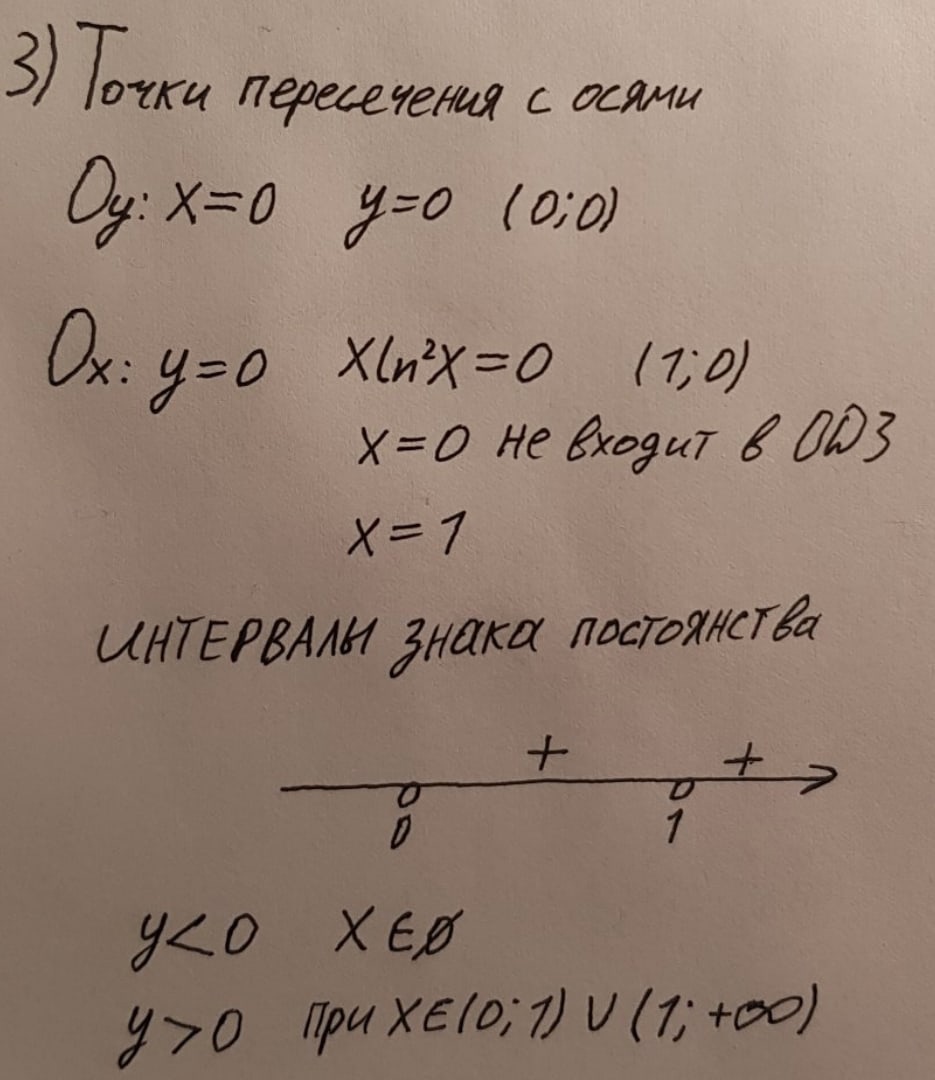 3) Точки пересечения с осями
Oy: x=0 y=0 (0;0)
Ox: y=0 xln²x=0 (1;0)
x=0 не входит в ОДЗ
x=1
ИНТЕРВАЛЫ знака постоянства
+ +
0 1
y<0 x∈∅
y>0 при x∈(0;1)∪(1;+∞)